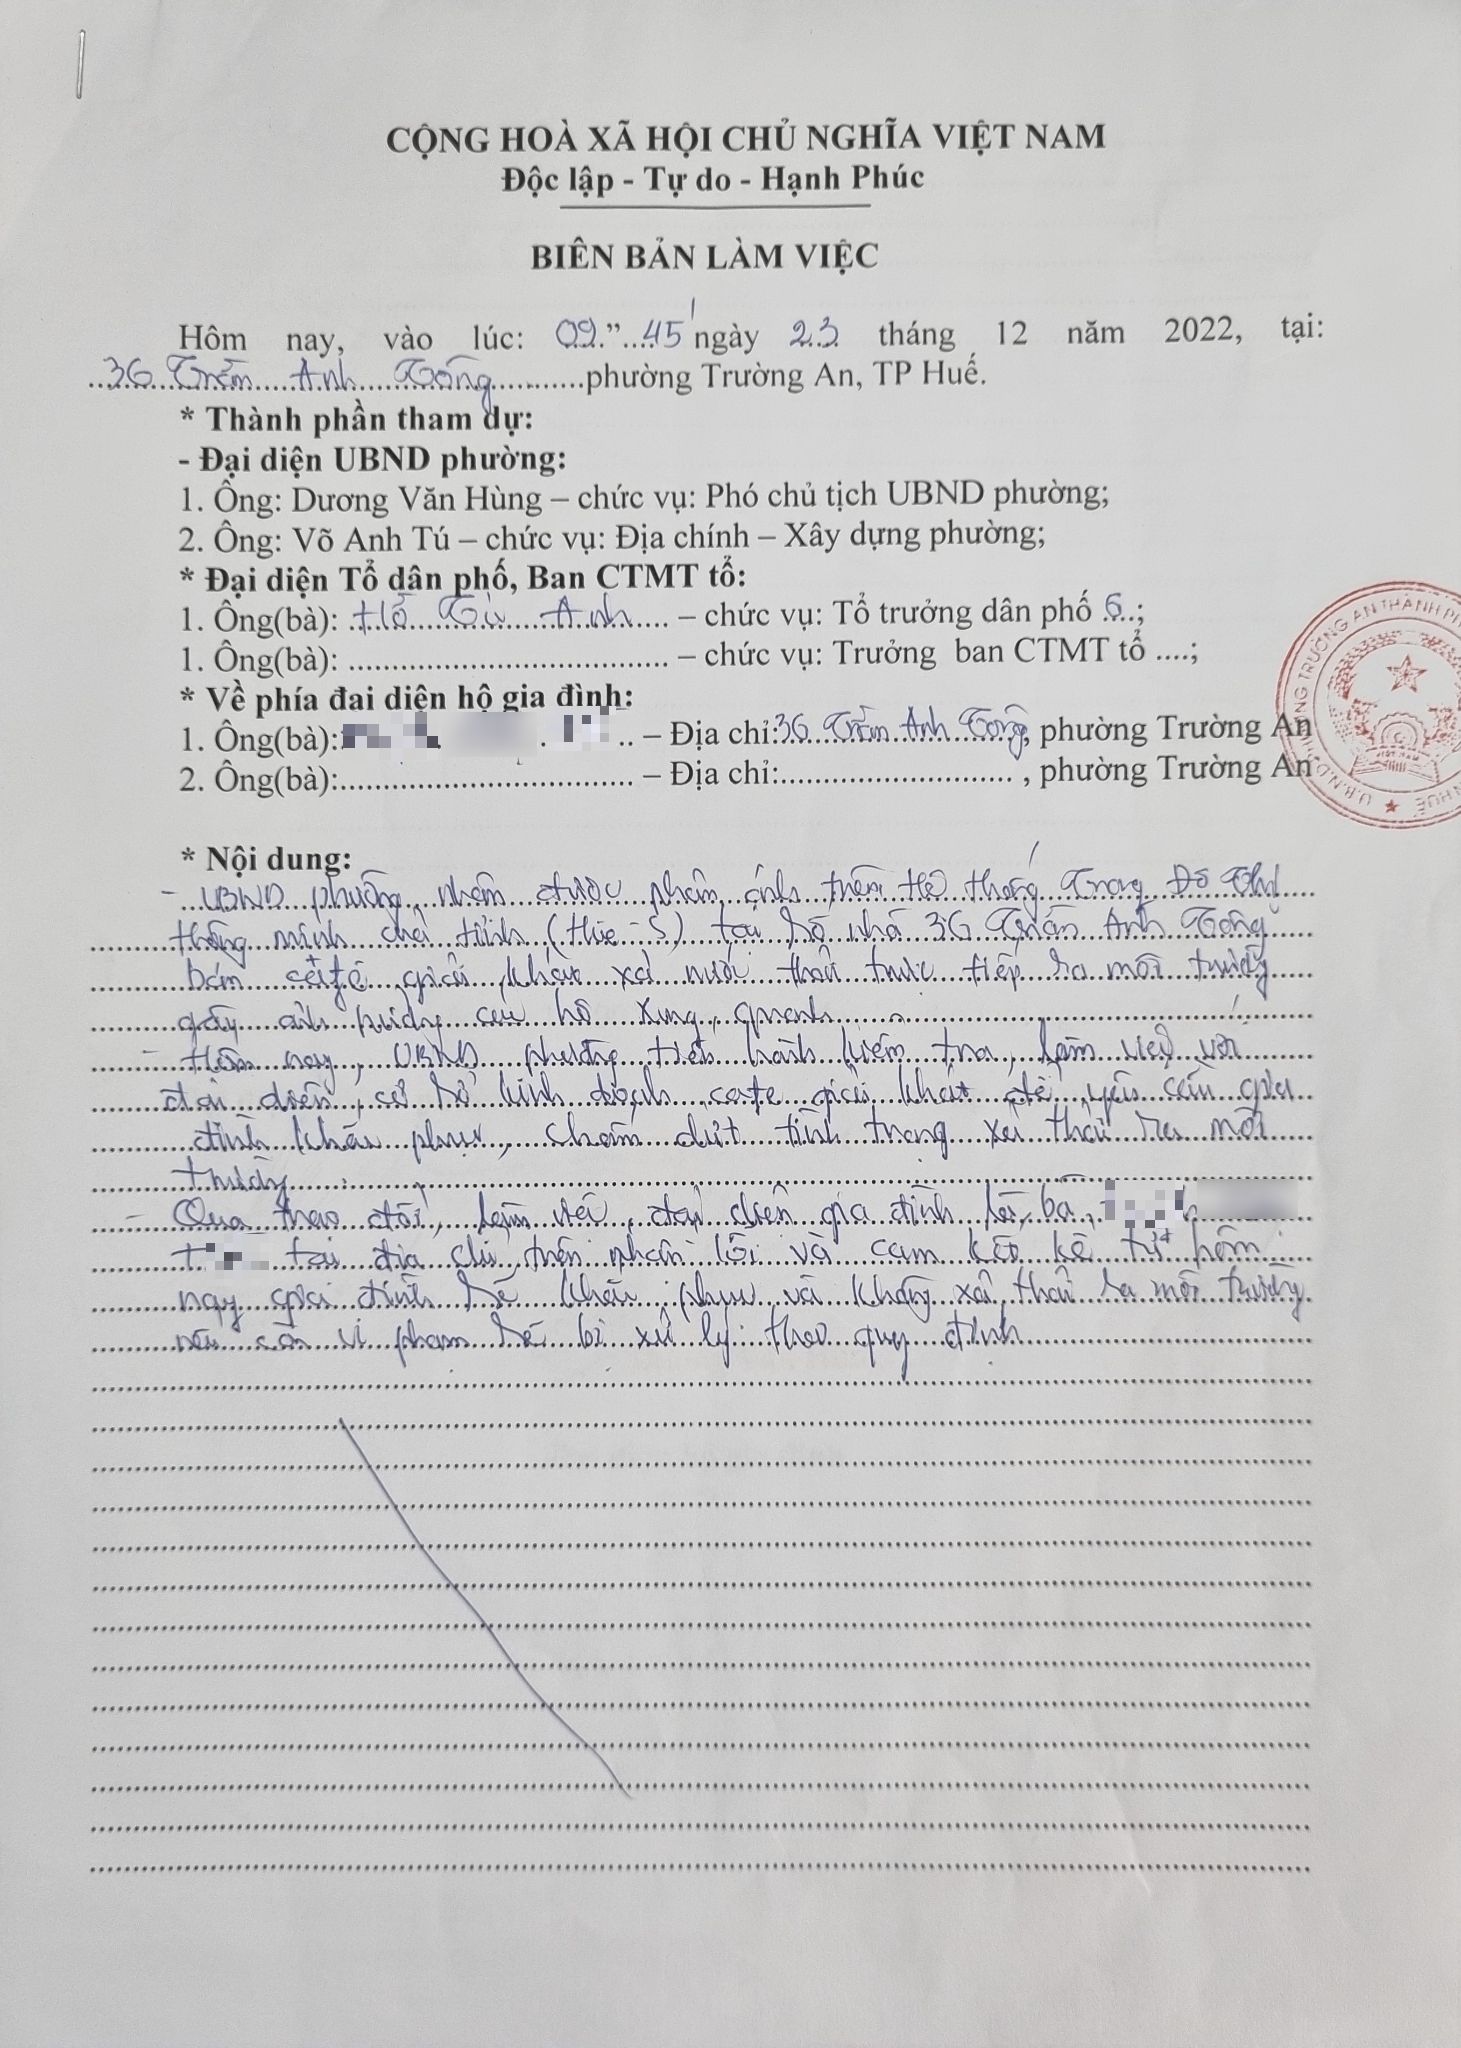 CỘNG HOÀ XÃ HỘI CHỦ NGHĨA VIỆT NAM
Độc lập - Tự do - Hạnh Phúc
BIÊN BẢN LÀM VIỆC
Hôm nay, vào lúc: 09.”...45' ngày 23 tháng 12 năm 2022, tại:
36 Trần Anh Tông phường Trường An, TP Huế.
* Thành phần tham dự:
- Đại diện UBND phường:
1. Ông: Dương Văn Hùng – chức vụ: Phó chủ tịch UBND phường;
2. Ông: Võ Anh Tú – chức vụ: Địa chính – Xây dựng phường;
* Đại diện Tổ dân phố, Ban CTMT tổ:
1. Ông(bà): Hồ Anh – chức vụ: Tổ trưởng dân phố 6;
1. Ông(bà): – chức vụ: Trưởng ban CTMT tổ ....;
* Về phía đai diện hộ gia đình:
1. Ông(bà): – Địa chỉ: 36 Trần Anh Tông, phường Trường An
2. Ông(bà): – Địa chỉ: , phường Trường An
* Nội dung:
- UBND phường nhận được phản ánh trên hệ thống Trong Đô Thị
thông minh của tỉnh (Hue-S) tại hộ nhà 36 Trần Anh Tông
bán cafe giải khát xả nước thải trực tiếp ra môi trường
gây ảnh hưởng các hộ xung quanh
- Hôm nay, UBND phường tiến hành kiểm tra, làm việc với
đại diện cơ sở kinh doanh cafe giải khát để yêu cầu gia
đình khắc phục, chấm dứt tình trạng xả thải ra môi
trường
- Qua trao đổi, làm việc, đại diện gia đình là bà
tại địa chỉ trên nhận lỗi và cam kết kể từ hôm
nay gia đình sẽ khắc phục và không xả thải ra môi trường
nếu còn vi phạm sẽ bị xử lý theo quy định